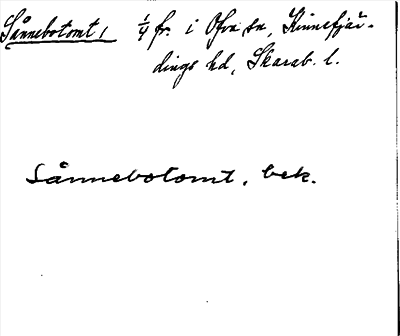 Sånnebotomt, 1/4 fr. i Ova sn, Kinnefjär-
dings hd, Skarab. l.
Sånnebotomt, bek.